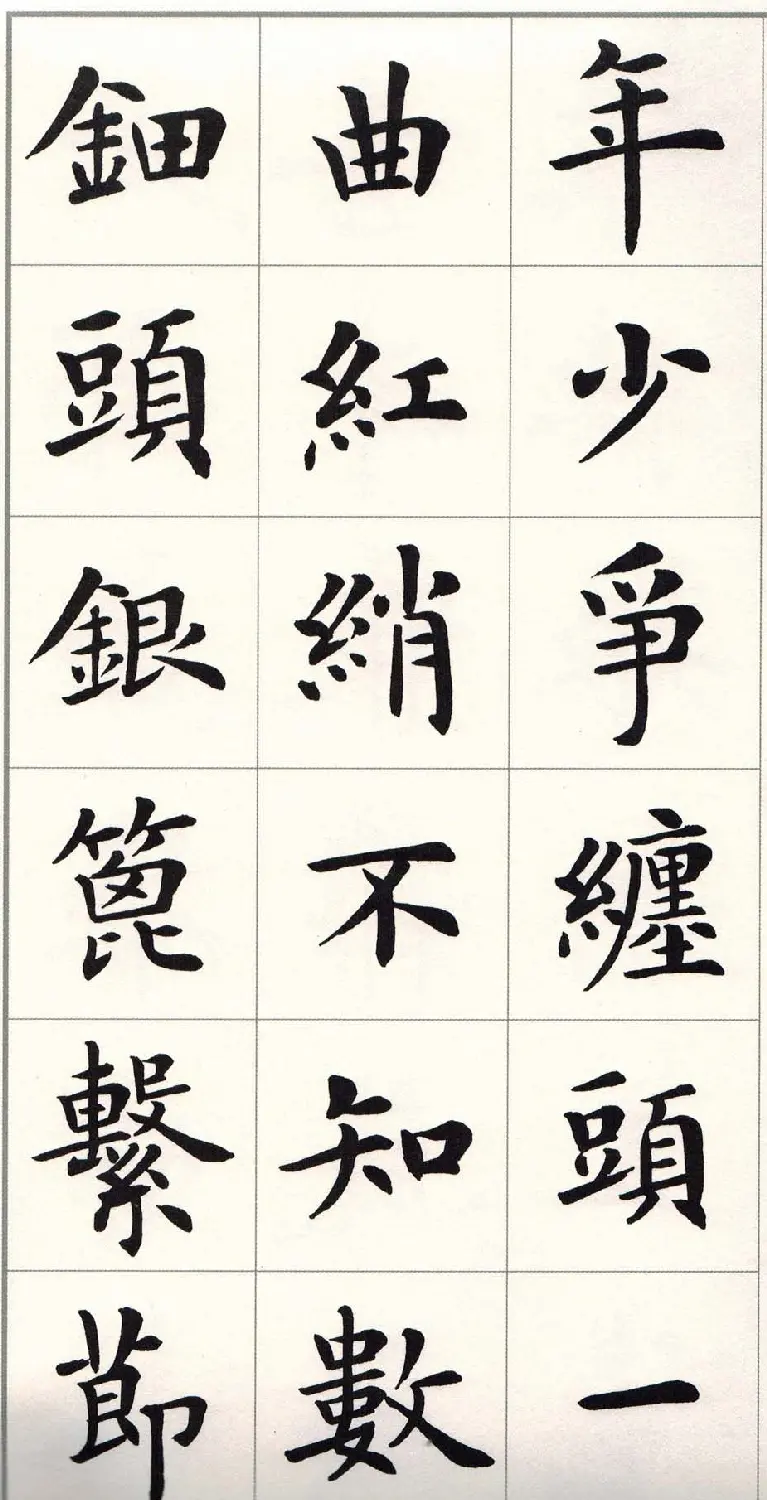 年少爭纏頭一
曲紅綃不知數
鈿頭銀篦繫節